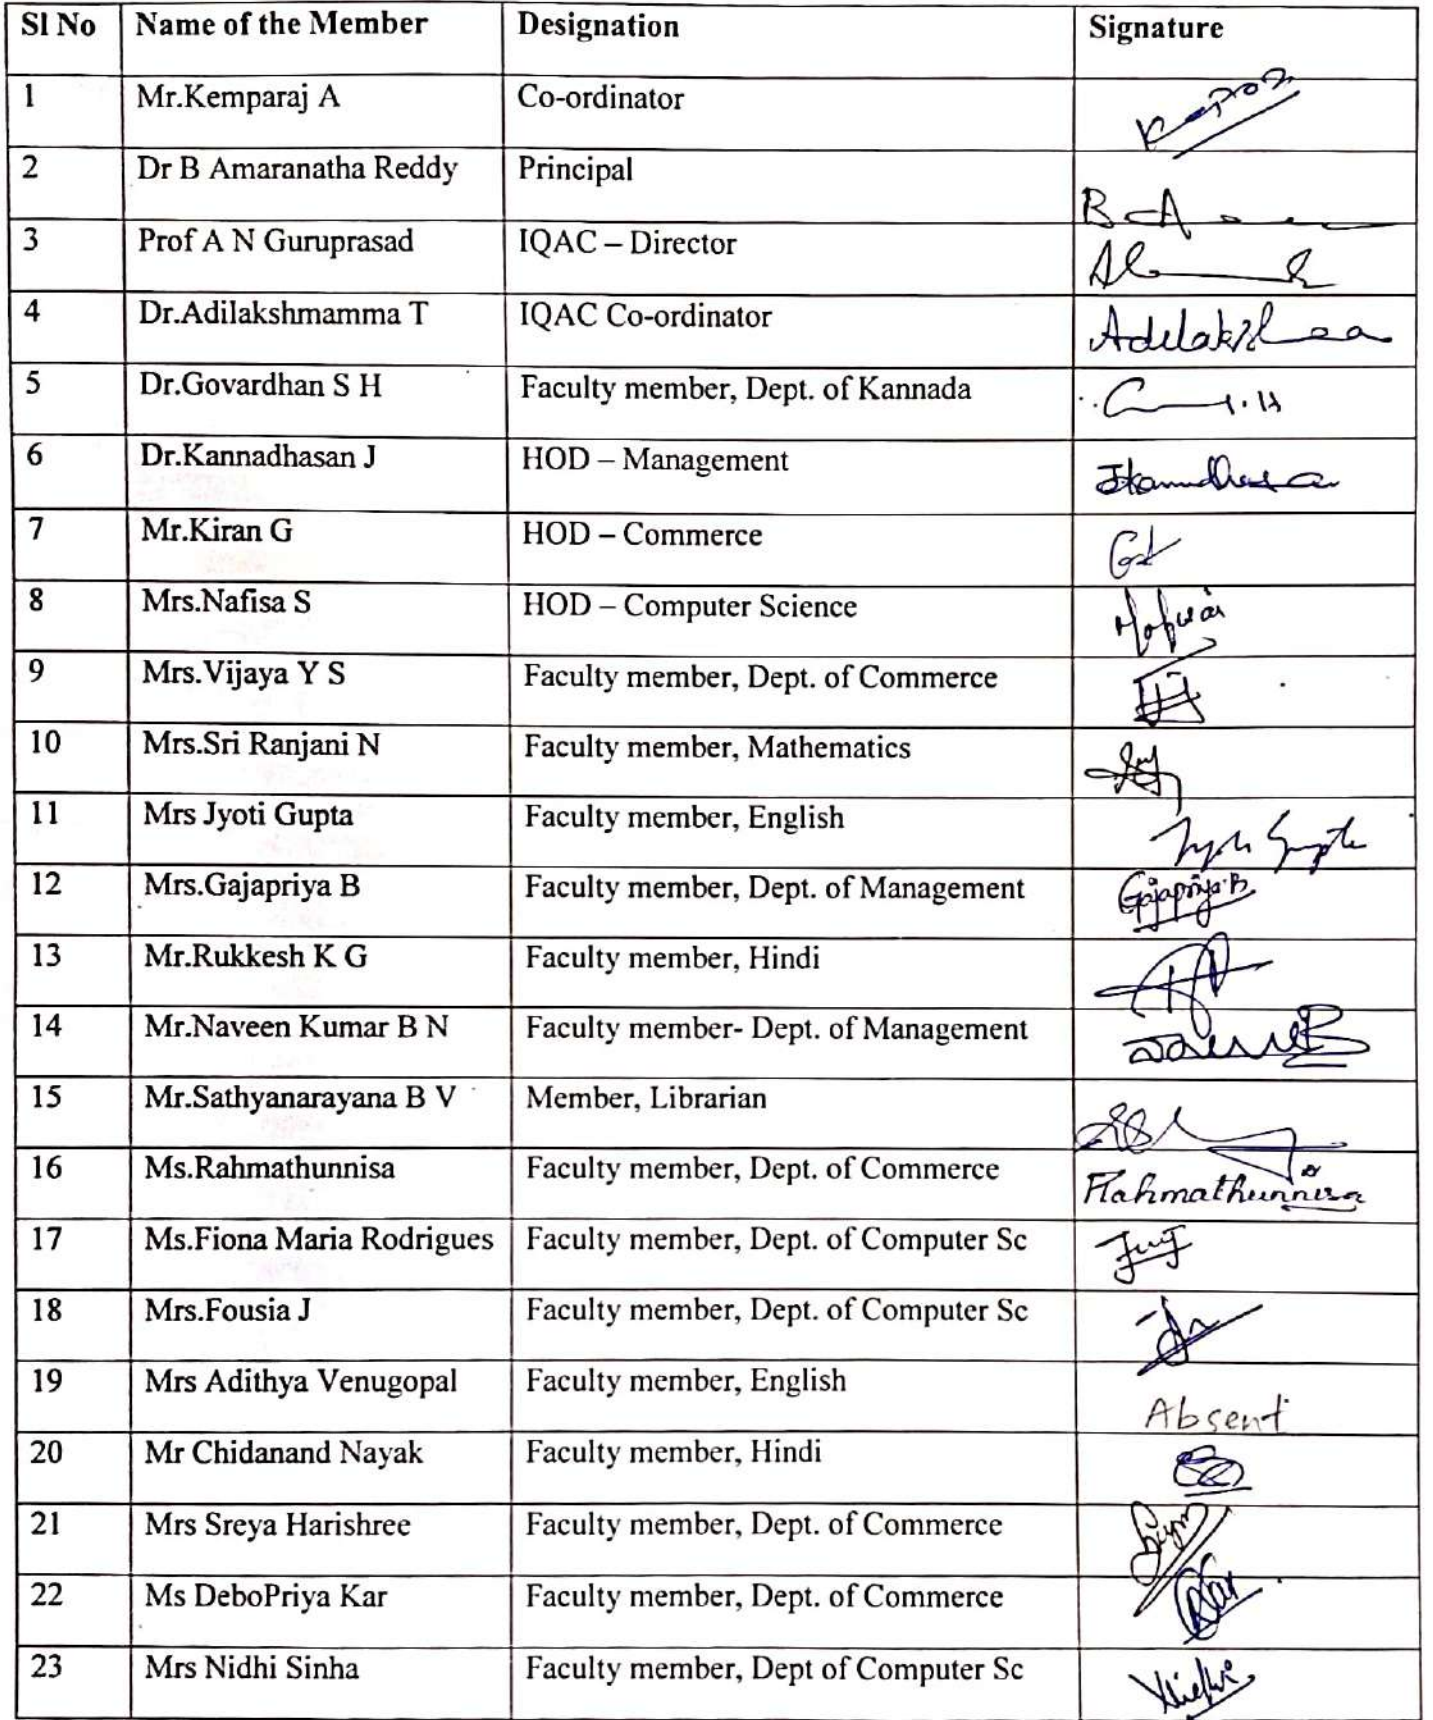 Sl No Name of the Member Designation Signature
1 Mr.Kemparaj A Co-ordinator
2 Dr B Amaranatha Reddy Principal B A
3 Prof A N Guruprasad IQAC – Director
4 Dr.Adilakshmamma T IQAC Co-ordinator
5 Dr.Govardhan S H Faculty member, Dept. of Kannada
6 Dr.Kannadhasan J HOD – Management
7 Mr.Kiran G HOD – Commerce
8 Mrs.Nafisa S HOD – Computer Science
9 Mrs.Vijaya Y S Faculty member, Dept. of Commerce
10 Mrs.Sri Ranjani N Faculty member, Mathematics
11 Mrs Jyoti Gupta Faculty member, English Jyoti Gupta
12 Mrs.Gajapriya B Faculty member, Dept. of Management Gajapriya.B
13 Mr.Rukkesh K G Faculty member, Hindi
14 Mr.Naveen Kumar B N Faculty member- Dept. of Management
15 Mr.Sathyanarayana B V Member, Librarian
16 Ms.Rahmathunnisa Faculty member, Dept. of Commerce Rahmathunnisa
17 Ms.Fiona Maria Rodrigues Faculty member, Dept. of Computer Sc
18 Mrs.Fousia J Faculty member, Dept. of Computer Sc
19 Mrs Adithya Venugopal Faculty member, English Absent
20 Mr Chidanand Nayak Faculty member, Hindi
21 Mrs Sreya Harishree Faculty member, Dept. of Commerce
22 Ms DeboPriya Kar Faculty member, Dept. of Commerce
23 Mrs Nidhi Sinha Faculty member, Dept of Computer Sc Nidhi